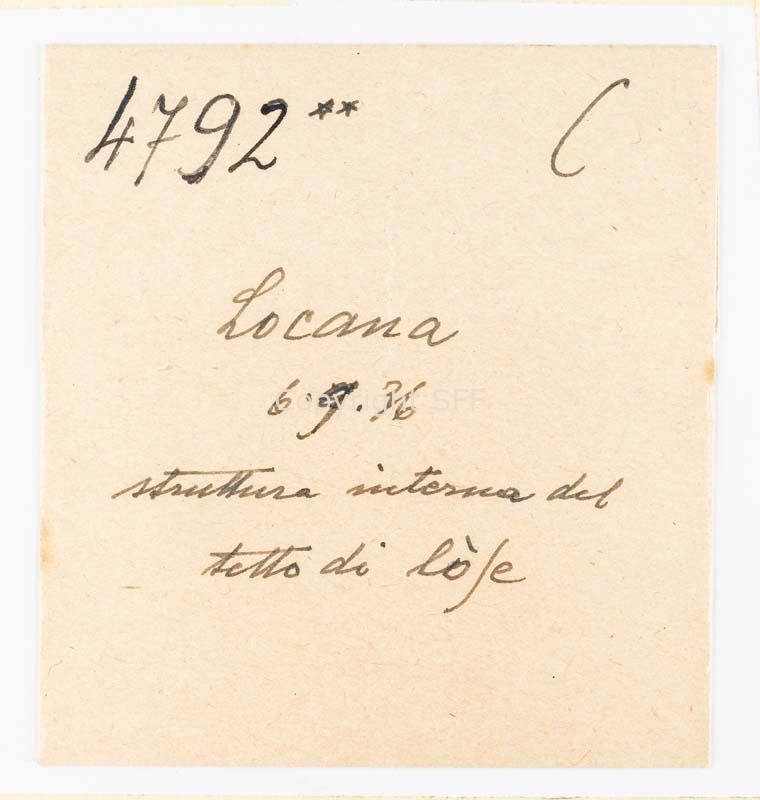 4792** C
Locana
6.9.36
struttura interna del
tetto di lòſe
Copyright SFF